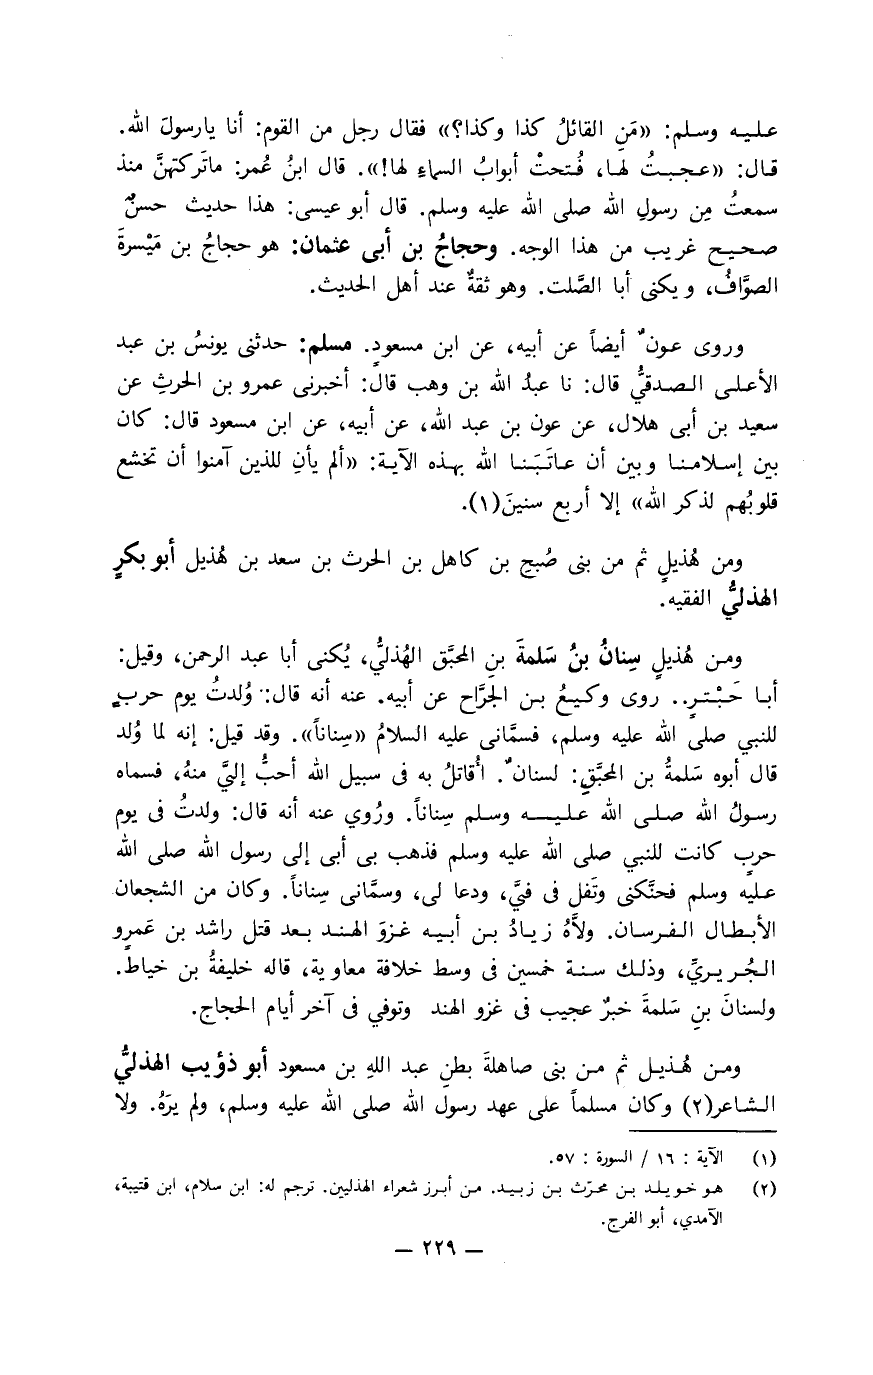 عليه وسلم: «مَنِ القائلُ كذا وكذا؟» فقال رجل من القوم: أنا يارسولَ الله.
قال: «عجبتُ لها، فُتحتْ أبوابُ السماءِ لها!». قال ابنُ عُمر: ماتَركتهنَّ منذ
سمعتُ مِن رسولِ الله صلى الله عليه وسلم. قال أبو عيسى: هذا حديث حسنٌ
صحيح غريب من هذا الوجه. وحجاجُ بن أبى عثمان: هو حجاجُ بن مَيْسرةَ
الصوَّافُ، ويكنى أبا الصَّلت. وهو ثقةٌ عند أهل الحديث.
وروى عونٌ أيضاً عن أبيه، عن ابن مسعودٍ. مسلم: حدثنى يونسُ بن عبد
الأعلى الصدفيُّ قال: نا عبدُ الله بن وهب قال: أخبرنى عمرو بن الحرثِ عن
سعيد بن أبى هلال، عن عون بن عبد الله، عن أبيه، عن ابن مسعود قال: كان
بين إسلامنا وبين أن عاتَبَنا الله بهذه الآية: «ألم يأنِ للذين آمنوا أن تخشع
قلوبُهم لذكر الله» إلا أربع سنينَ(١).
ومن هُذيلٍ ثم من بنى صُبحِ بن كاهل بن الحرث بن سعد بن هُذيل أبو بكرٍ
الهذليُّ الفقيه.
ومن هُذيلٍ سِنانُ بنُ سَلمةَ بنِ المحبَّق الهُذليُّ، يُكنى أبا عبد الرحمن، وقيل:
أبا حَبْترٍ.. روى وكيعُ بن الجرَّاح عن أبيه. عنه أنه قال: وُلدتُ يوم حربٍ
للنبي صلى الله عليه وسلم، فسمَّانى عليه السلامُ «سِناناً». وقد قيل: إنه لما وُلد
قال أبوه سَلمةُ بن المحبَّقِ: لسنانٌ. أُقاتلُ به فى سبيل الله أحبُّ إليَّ منهُ، فسماه
رسولُ الله صلى الله عليه وسلم سِناناً. ورُوي عنه أنه قال: ولدتُ فى يوم
حربٍ كانت للنبي صلى الله عليه وسلم فذهب بى أبى إلى رسول الله صلى الله
عليه وسلم فحنَّكنى وتَفل فى فيَّ، ودعا لى، وسمَّانى سِناناً. وكان من الشجعان
الأبطال الفرسان. ولاَّهُ زيادُ بن أبيه غزوَ الهند بعد قتل راشد بن عَمرٍو
الجُريريِّ، وذلك سنة خمسين فى وسط خلافة معاوية، قاله خليفةُ بن خياط.
ولسنانَ بنِ سَلمةَ خبرٌ عجيب فى غزو الهند وتوفي فى آخر أيام الحجاج.
ومن هُذيل ثم من بنى صاهلةَ بطنِ عبد اللهِ بن مسعود أبو ذؤيب الهذليُّ
الشاعر(٢) وكان مسلماً على عهد رسول الله صلى الله عليه وسلم، ولم يرَهُ. ولا
(١) الآية : ١٦ / السورة : ٥٧.
(٢) هو خويلد بن محرّث بن زبيد. من أبرز شعراء الهذليين. ترجم له: ابن سلام، ابن قتيبة،
الآمدي، أبو الفرج.
— ٢٢٩ —